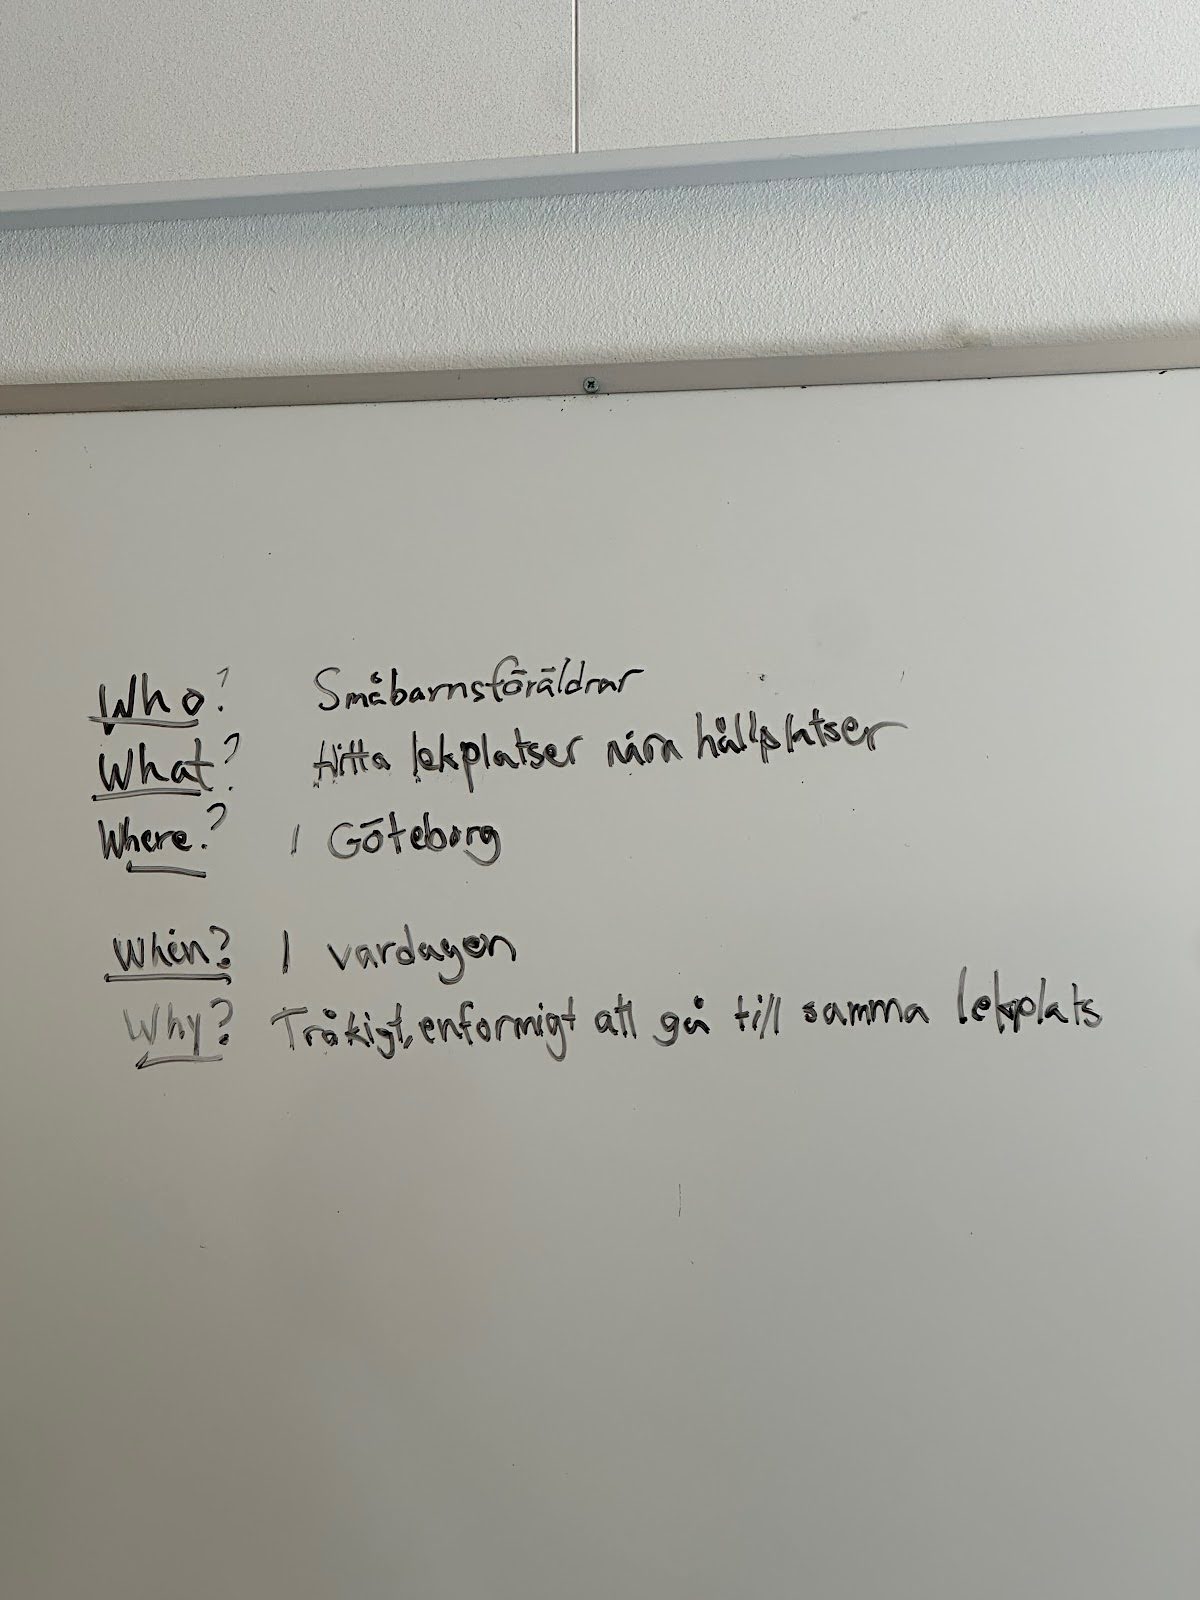 Who? Småbarnsföräldrar
What? Hitta lekplatser nära hållplatser
Where? I Göteborg
When? I vardagen
Why? Tråkigt, enformigt att gå till samma lekplats